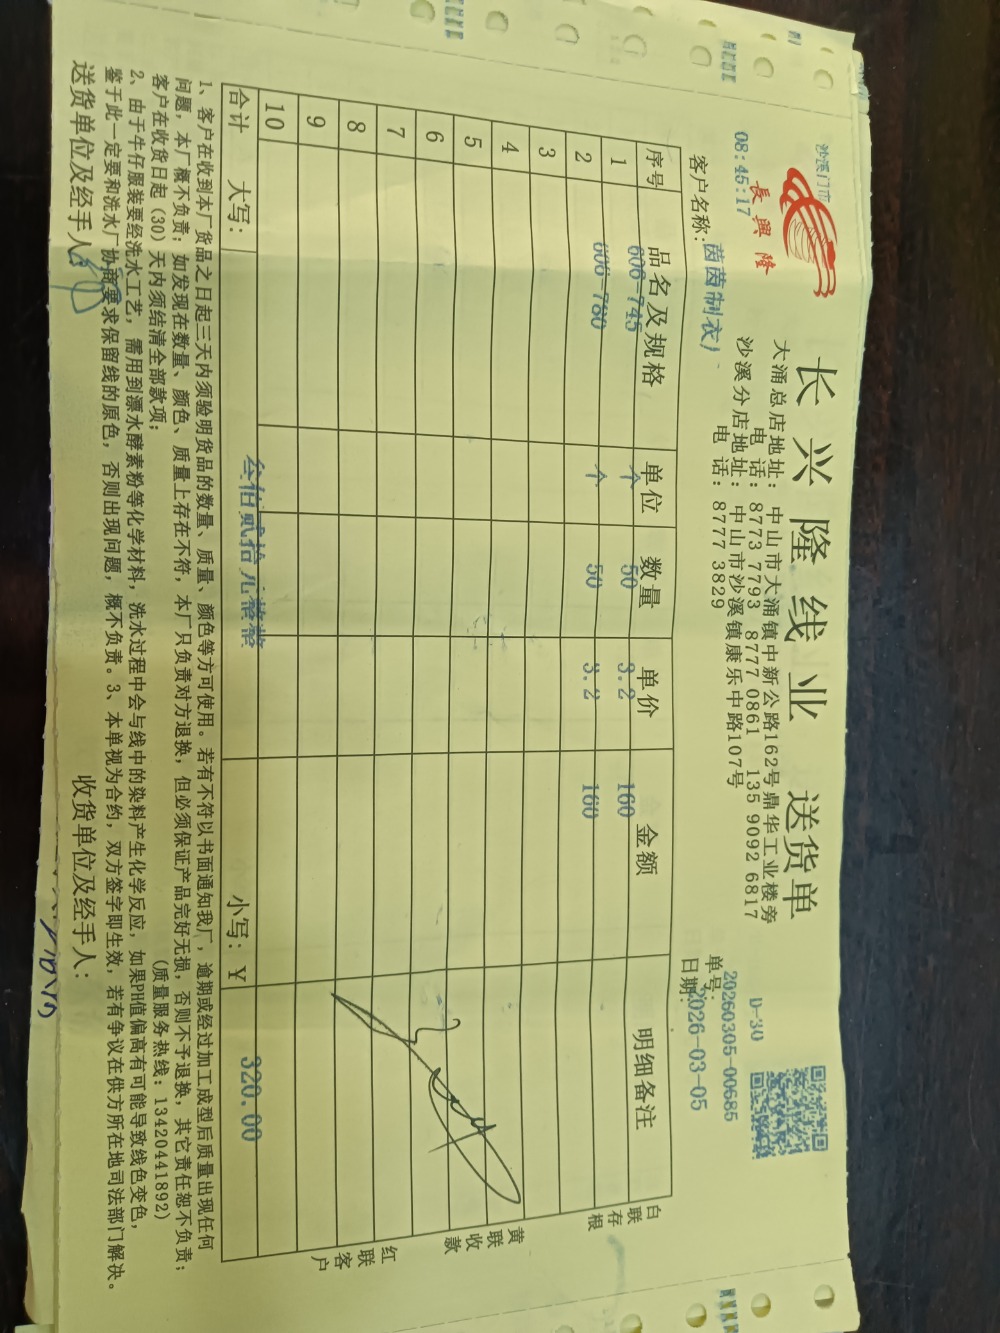 沙溪门市
長興隆
08:45:17
长兴隆线业 送货单
大涌总店地址：中山市大涌镇中新公路162号鼎华工业楼旁
电 话：8773 7793 8777 0861 135 9092 6817
沙溪分店地址：中山市沙溪镇康乐中路107号
电 话：8777 3829
D-30
单号：20260305-00685
日期：2026-03-05
客户名称：茵茵制衣厂
序号 品名及规格 单位 数量 单价 金额 明细备注
1 606-745 个 50 3.2 160
2 606-780 个 50 3.2 160
3
4
5
6
7
8
9
10
合计 大写：叁佰贰拾元整 小写：￥ 320.00
白联存根
黄联收款
红联客户
1、客户在收到本厂货品之日起三天内须验明货品的数量、质量、颜色等方可使用。若有不符以书面通知我厂，逾期或经过加工成型后质量出现任何
问题，本厂概不负责；如发现在数量、颜色、质量上存在不符，本厂只负责对方退换，但必须保证产品完好无损，否则不予退换，其它责任恕不负责；
客户在收货日起（30）天内须结清全部款项； （质量服务热线：13420441892）
2、由于牛仔服装要经洗水工艺，需用到漂水酵素粉等化学材料，洗水过程中会与线中的染料产生化学反应，如果PH值偏高有可能导致线色变色，
鉴于此一定要和洗水厂协商要求保留线的原色，否则出现问题，概不负责。3、本单视为合约，双方签字即生效，若有争议在供方所在地司法部门解决。
送货单位及经手人： 收货单位及经手人：